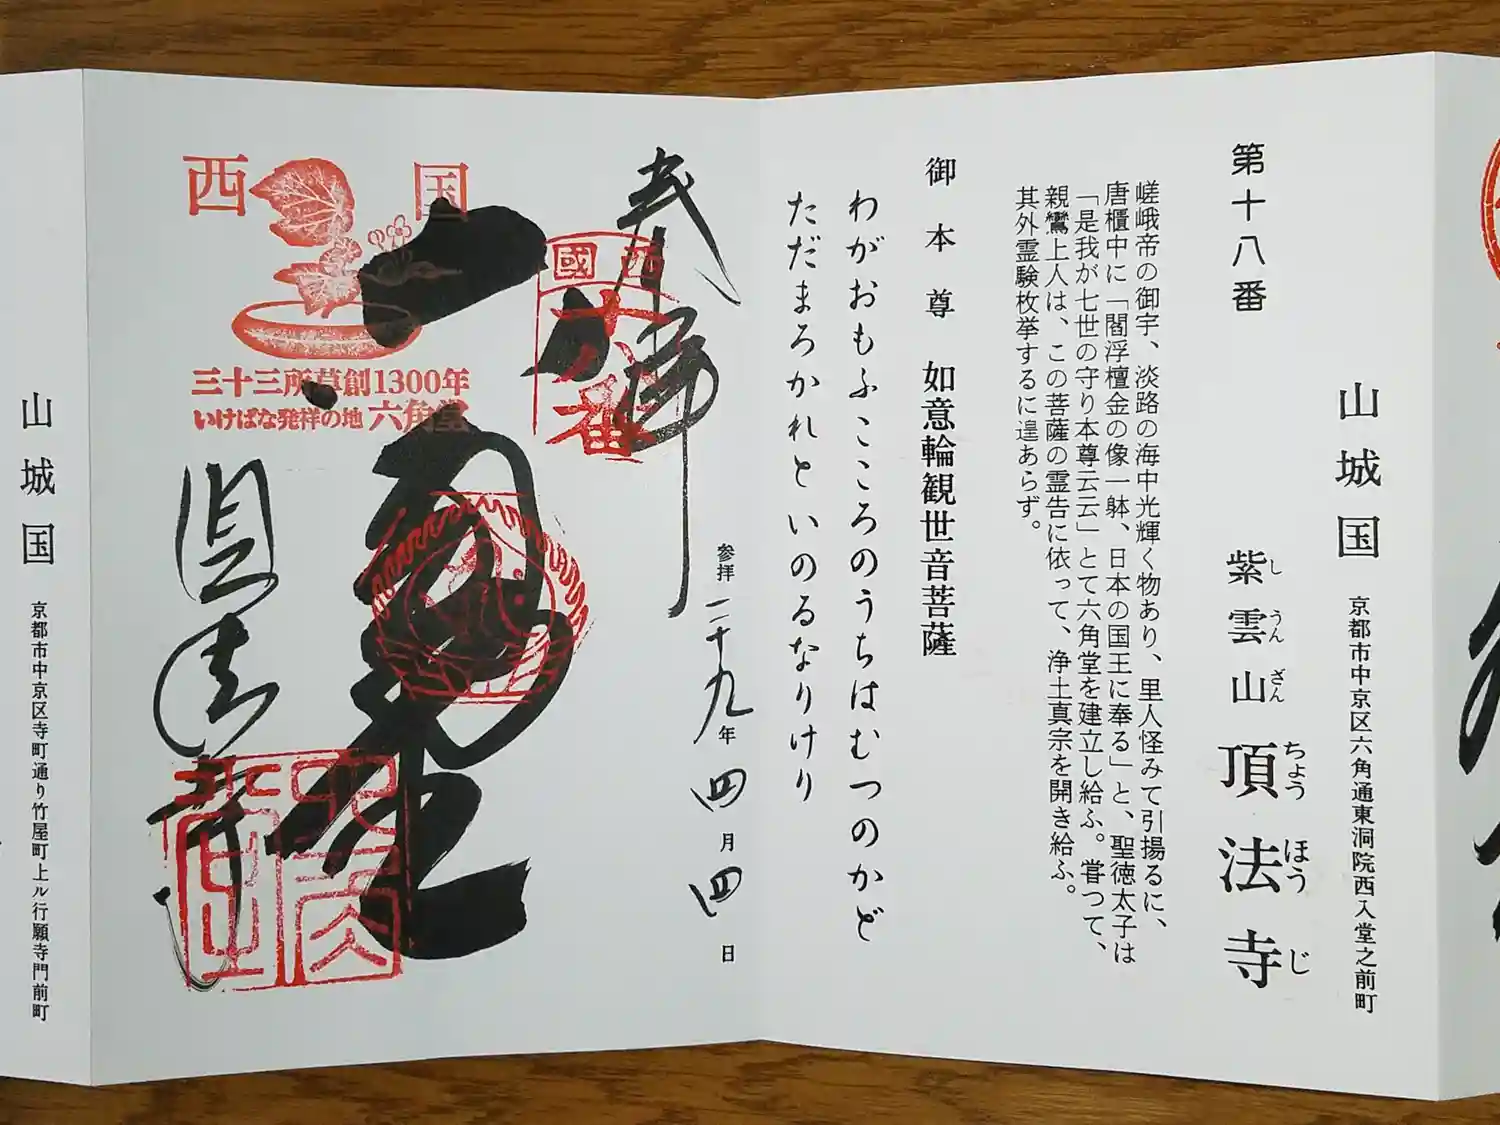 山城国
京都市中京区六角通東洞院西入堂之前町
第十八番
紫雲山
しうんざん
頂法寺
ちょうほうじ
嵯峨帝の御宇、淡路の海中光輝く物あり、里人怪みて引揚るに、
唐櫃中に「閻浮檀金の像一躰、日本の国王に奉る」と、聖徳太子は
「是我が七世の守り本尊云云」とて六角堂を建立し給ふ。甞つて、
親鸞上人は、この菩薩の霊告に依って、浄土真宗を開き給ふ。
其外霊験枚挙するに遑あらず。
御本尊 如意輪観世音菩薩
わがおもふこころのうちはむつのかど
ただまろかれといのるなりけり
奉拝
参拝二十九年四月四日
西國
十八番
西国
三十三所草創1300年
いけばな発祥の地 六角堂
六角堂
頂法寺
山城国
京都市中京区寺町通り竹屋町上ル行願寺門前町